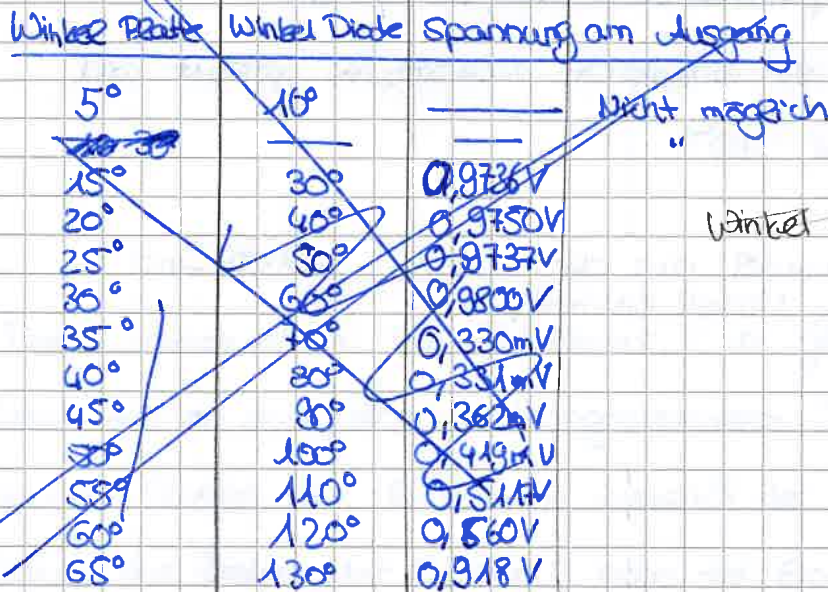 Winkel Platte Winkel Diode Spannung am Ausgang
5° 10° —— Nicht möglich
— — "
15° 30° 0,9736V
20° 40° 0,9750V Winkel
25° 50° 0,9737V
30° 60° 0,9800V
35° 70° 0,330mV
40° 80° 0,331mV
45° 90° 0,362mV
50° 100° 0,419mV
55° 110° 0,5117V
60° 120° 0,560V
65° 130° 0,918V